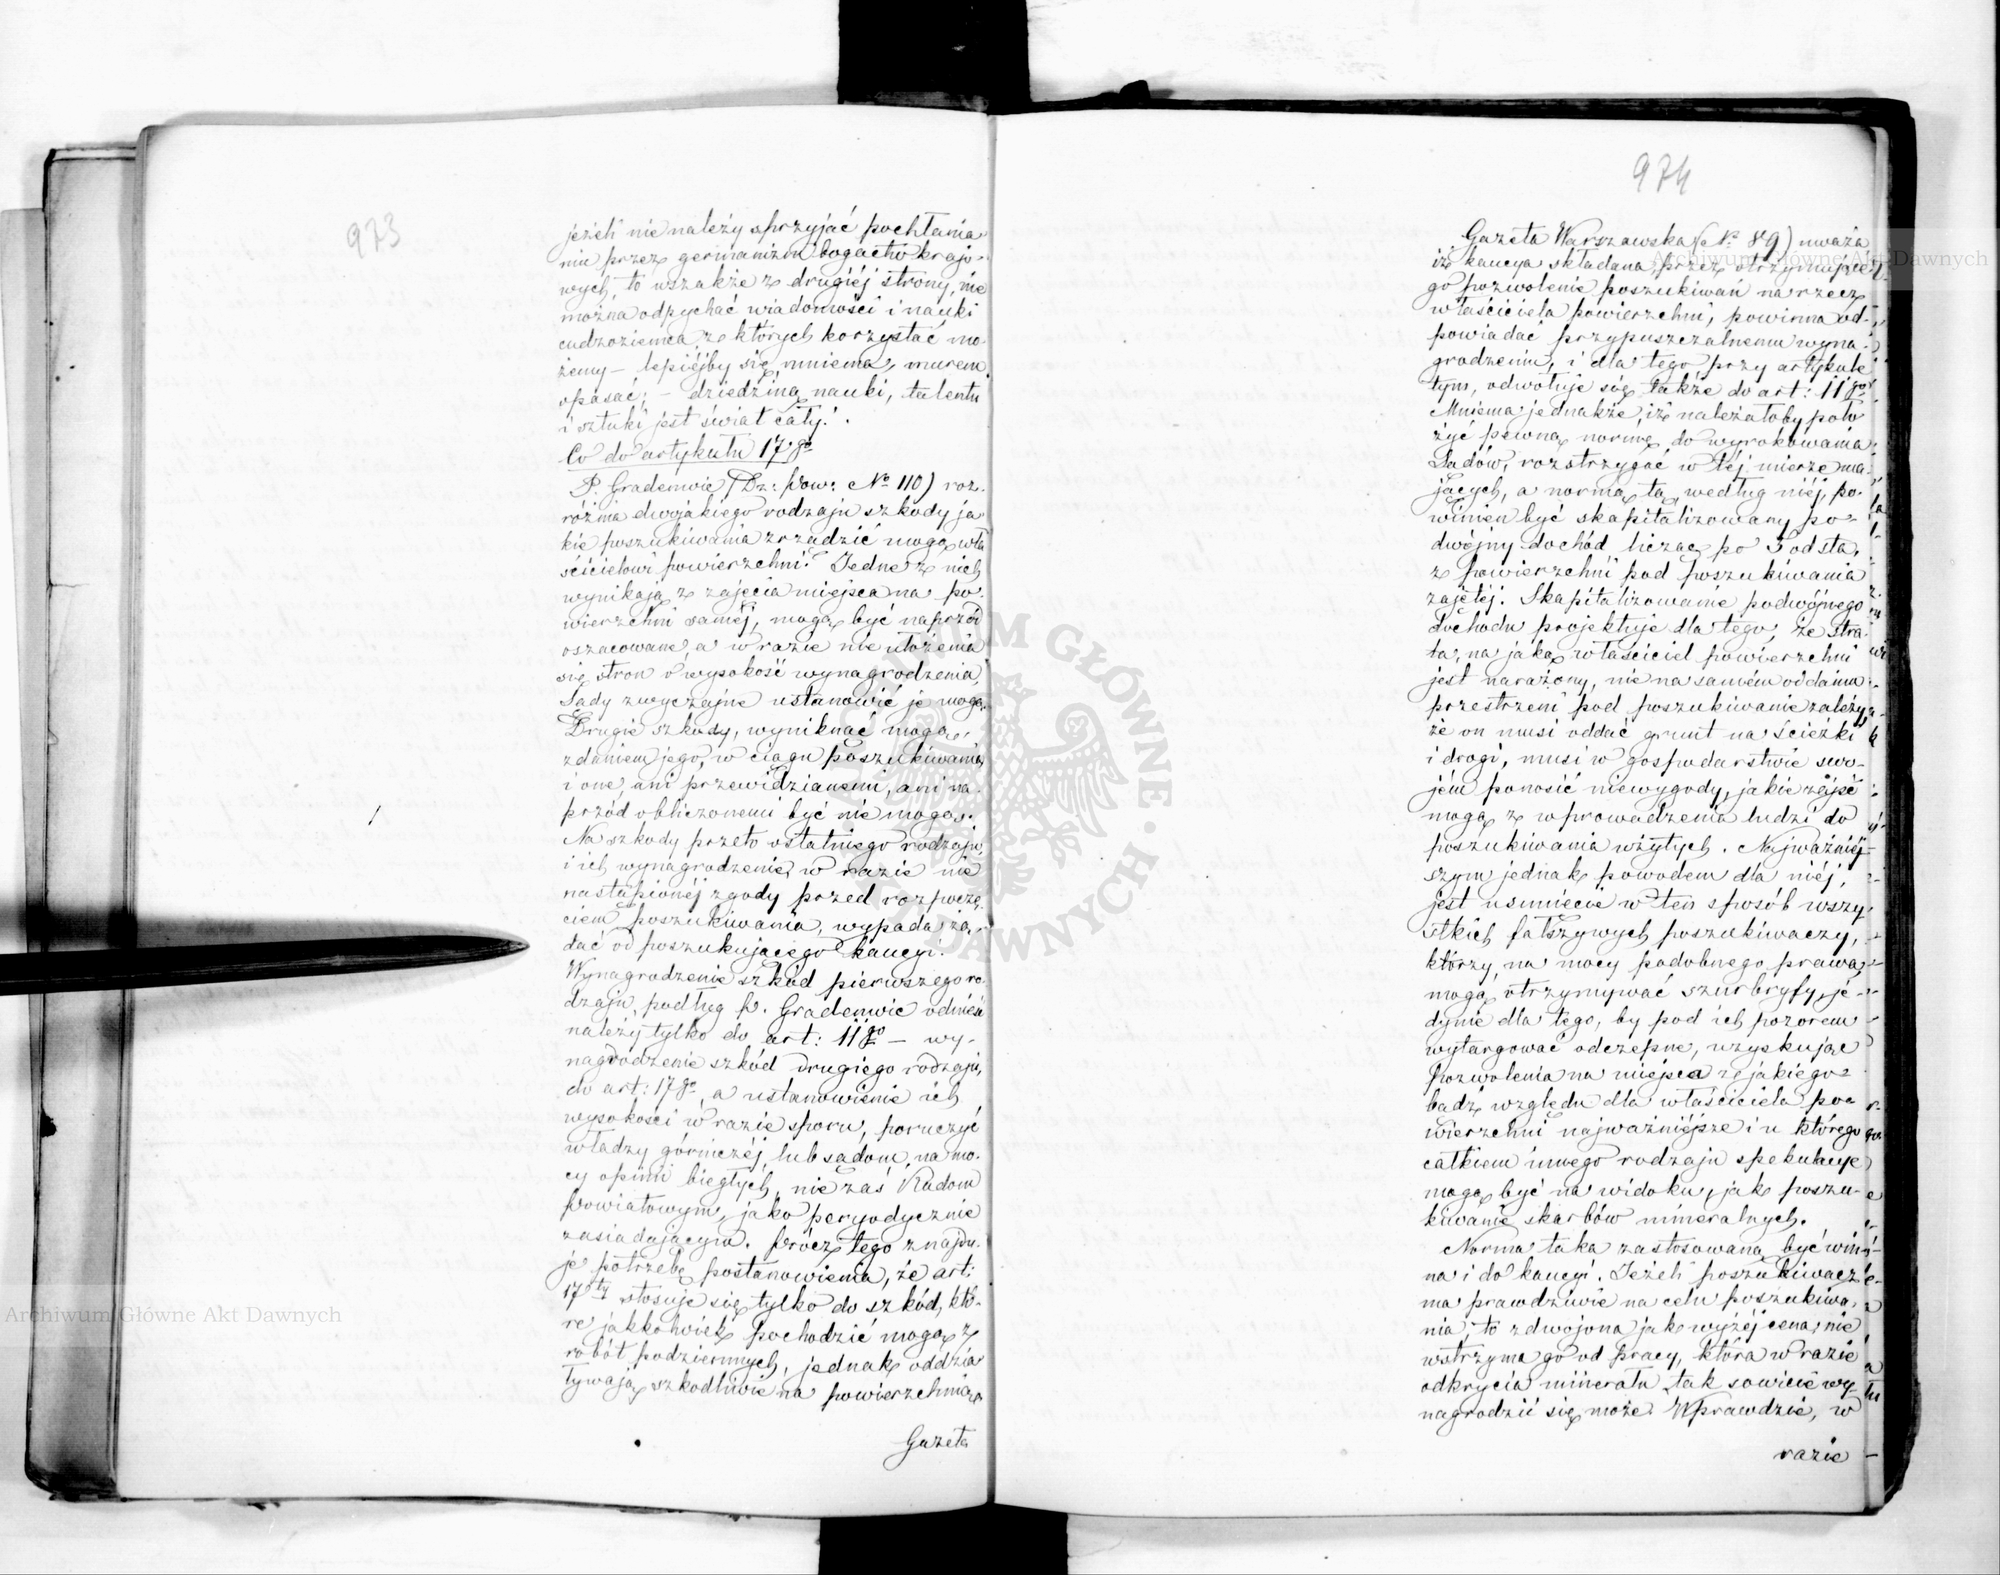 973
jeżeli nie należy sprzyjać pochłania-
niu przez germanizm bogactw krajo-
wych, to wszakże z drugiéj strony, nie
można odpychać wiadomości i nauki
cudzoziemca, z których korzystać mo-
żemy – lepiéjby się, mniema, murem
opasać; – dziedziną nauki, talentu
i sztuki jest świat cały!
Co do artykułu 17go
P. Gradenwic (Dz: pow: No 110) roz-
różnia dwojakiego rodzaju szkody ja-
kie poszukiwania zrządzić mogą wła-
ścicielowi powierzchni. Jedne z nich
wynikają z zajęcia miejsca na po-
wierzchni saméj, mogą być naprzód
oszacowane, a w razie nie ułożenia
się stron o wysokość wynagrodzenia,
Sądy zwyczajne ustanowić je mogą.
Drugie szkody, wyniknąć mogą,
zdaniem jego, w ciągu poszukiwania,
i one, ani przewidzianemi, ani na-
przód obliczonemi być nie mogą.
Na szkody przeto ostatniego rodzaju,
i ich wynagrodzenie, w razie nie
nastąpionéj zgody przed rozpoczę-
ciem poszukiwania, wypada żą-
dać od poszukującego kaucyi.
Wynagrodzenie szkód pierwszego ro-
dzaju, podług p. Gradenwic odnieść
należy tylko do art: 11go – wy-
nagrodzenie szkód drugiego rodzaju,
do art: 17go, a ustanowienie ich
wysokości w razie sporu, poruczyć
władzy górniczéj, lub sądom, na mo-
cy opinii biegłych, nie zaś Radom
powiatowym, jako peryodycznie
zasiadającym. Prócz tego znajdu-
je potrzebę postanowienia, że art:
17ty stosuje się tylko do szkód, któ-
re jakkolwiek pochodzić mogą z
robót podziemnych, jednak oddzia-
ływają szkodliwie na powierzchnią.
Gazeta
974
Gazeta Warszawska (No 89) uważa
iż kaucya składana, przez otrzymujące-
go pozwolenie poszukiwań na rzecz
właściciela powierzchni, powinna od-
powiadać przypuszczalnemu wyna-
grodzeniu, i dla tego, przy artykule
tym, odwołuje się także do art: 11go
Mniema jednakże, iż należałoby poło-
żyć pewną normę do wyrokowania
Sądów, rozstrzygać w téj mierze ma-
jących, a normą tą, według niéj, po-
winien być skapitalizowany po-
dwójny dochód, licząc po 5 od sta,
z powierzchni pod poszukiwania
zajętéj. Skapitalizowanie podwójnego
dochodu projektuje dla tego, że stra-
ta, na jaką właściciel powierzchni
jest narażony, nie na samém oddaniu
przestrzeni pod poszukiwanie zależy,
że on musi oddać grunt na ścieżki
i drogi, musi w gospodarstwie swo-
jém ponosić niewygody, jakie zajść
mogą z wprowadzenia ludzi do
poszukiwania użytych. Najważniej-
szym jednak powodem dla niéj,
jest usunięcie w ten sposób wszy-
stkich fałszywych poszukiwaczy,
którzy, na mocy podobnego prawa,
mogą otrzymywać szurbryfy, je-
dynie dla tego, by pod ich pozorem
wytargować odczepne, uzyskując
pozwolenia na miejsca z jakiego-
bądź względu dla właściciela po-
wierzchni najważniejsze i u którego
całkiem innego rodzaju spekulacye
mogą być na widoku, jak poszu-
kiwanie skarbów mineralnych.
Norma taka zastosowaną być win-
na i do kaucyi. Jeżeli poszukiwacz
ma prawdziwie na celu poszukiwa-
nia, to zdwojona jak wyżéj cena, nie
wstrzyma go od pracy, która w razie
odkrycia minerału tak sowicie wy-
nagrodzić się może. Wprawdzie, w
razie
ARCHIWUM GŁÓWNE AKT DAWNYCH
Archiwum Główne Akt Dawnych
Archiwum Główne Akt Dawnych